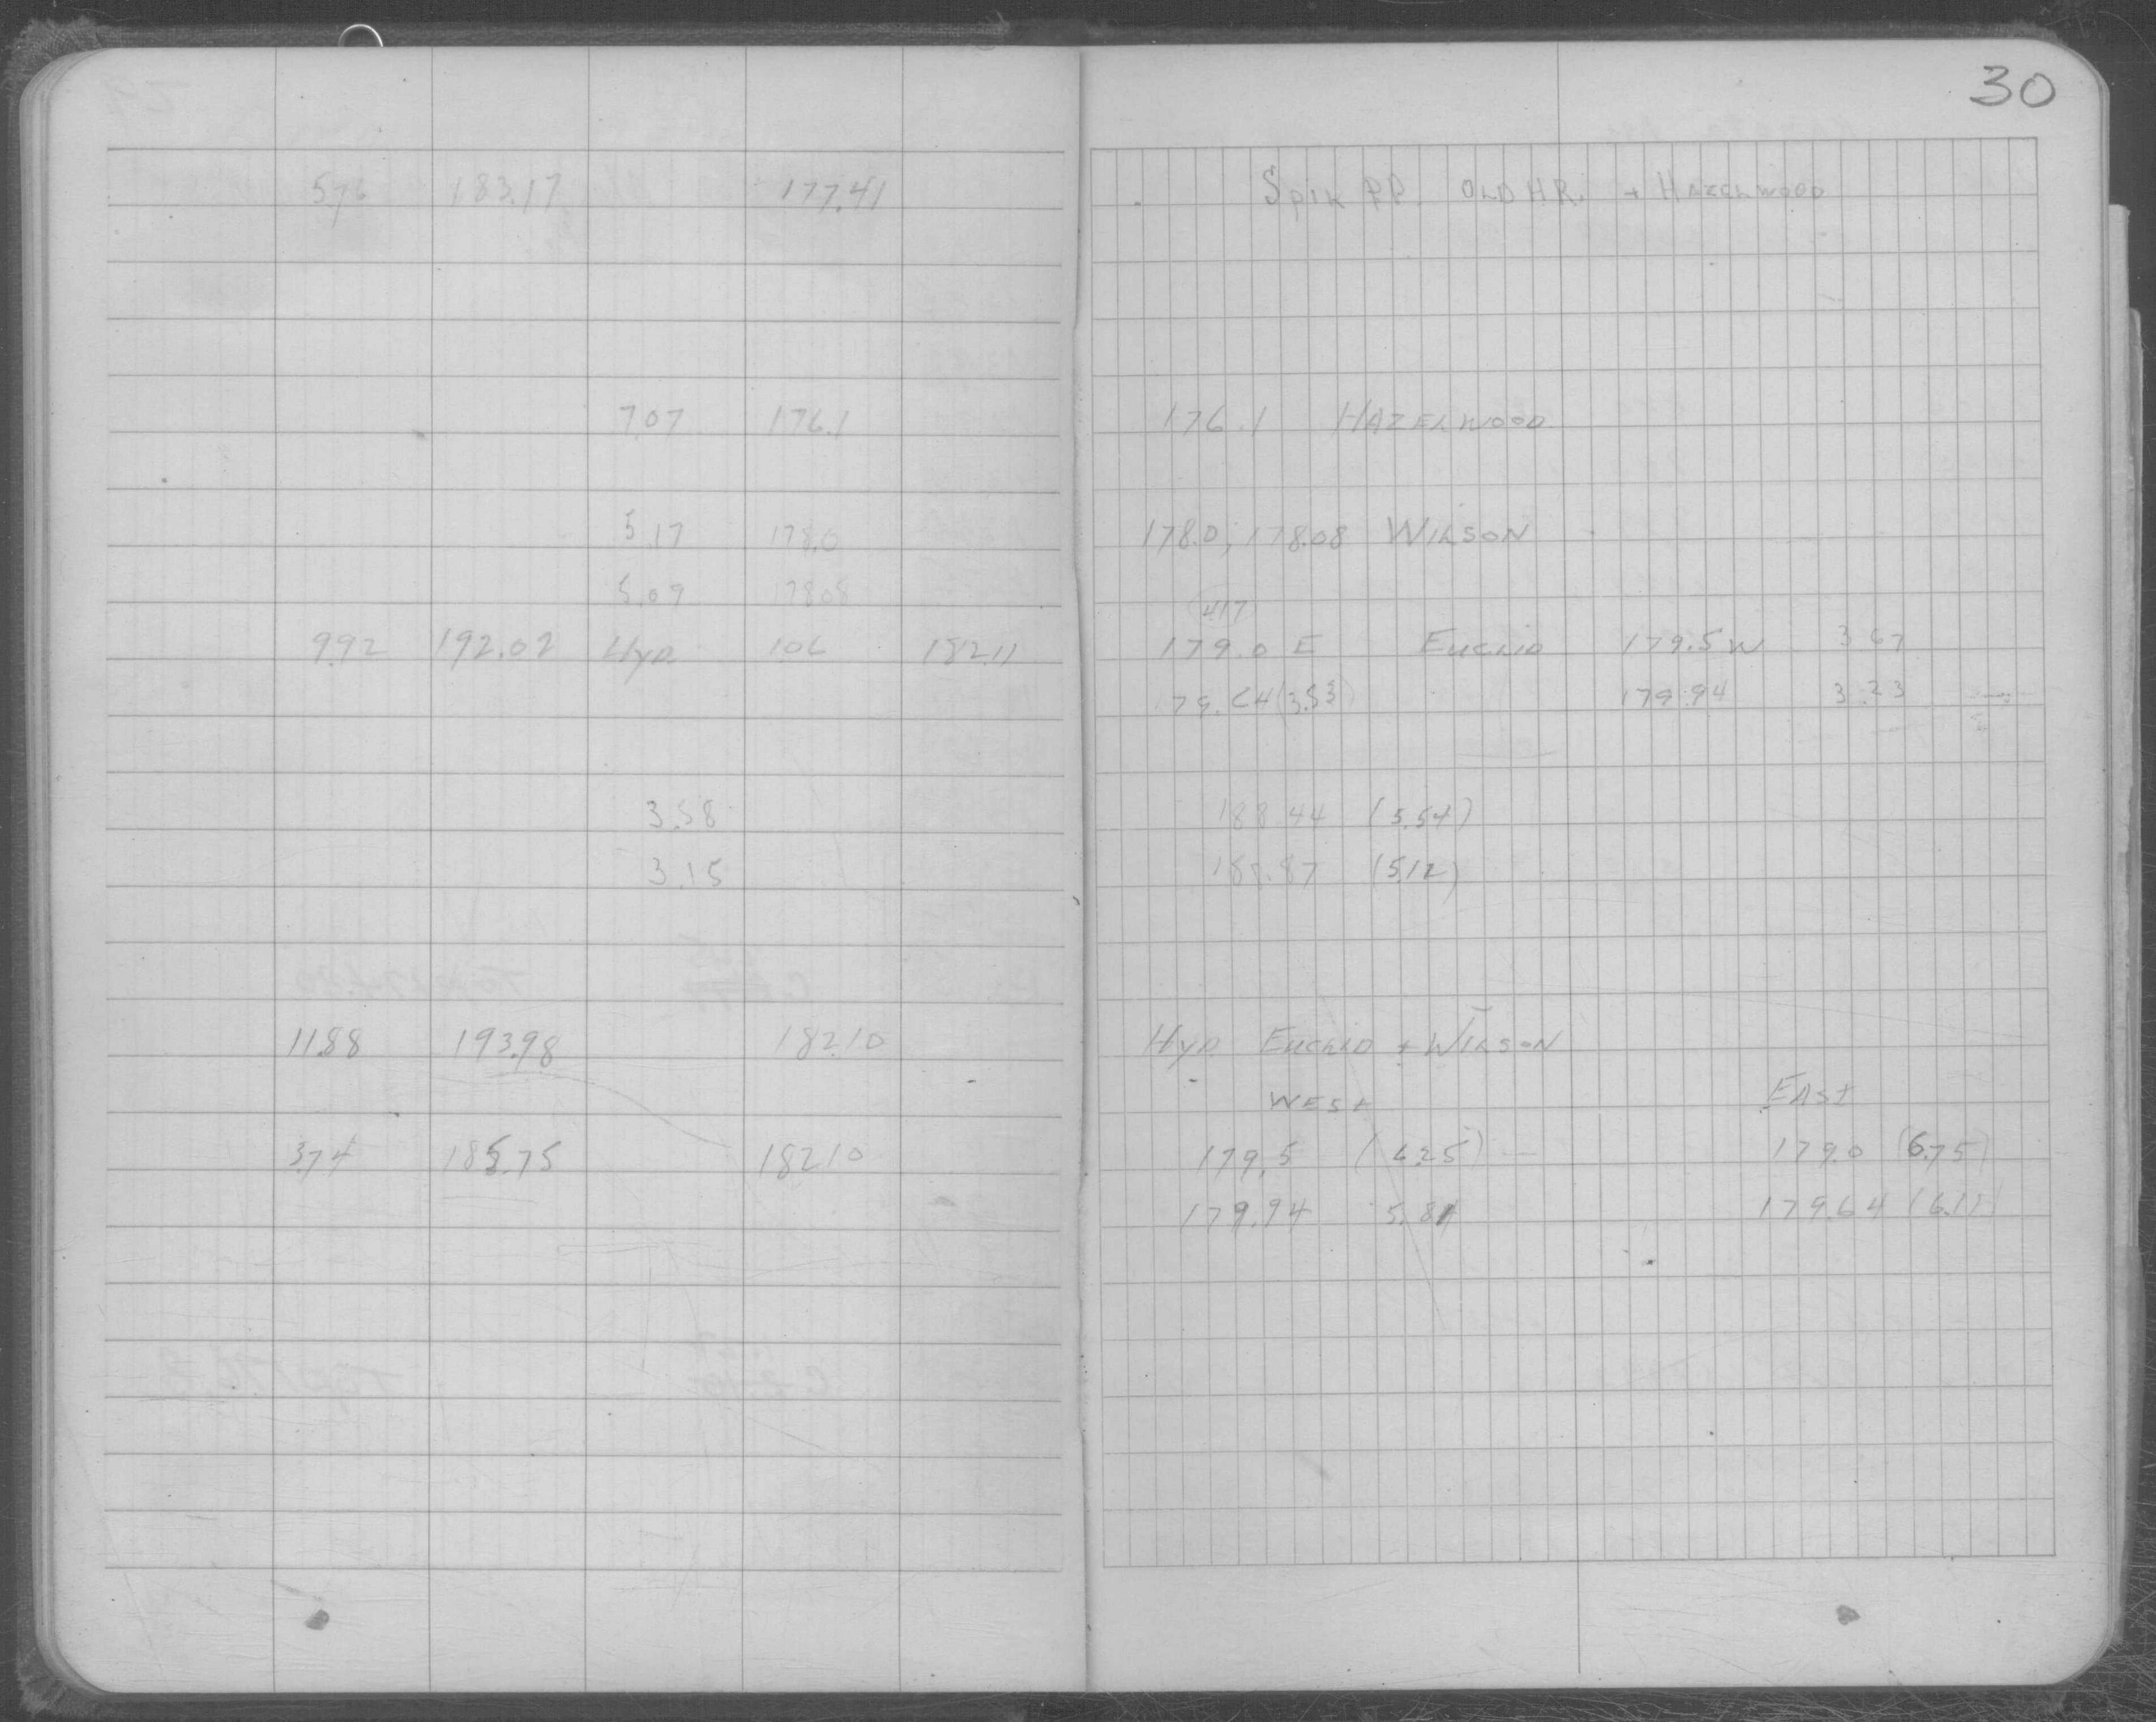 30
5.76 183.17 177.41 Spik PP. OLD HR. + HAZELWOOD
7.07 176.1 176.1 HAZELWOOD
5.17 178.0 178.0; 178.08 WILSON
5.09 178.08 (4.17)
9.92 192.02 Hyd. 1.06 182.11 179.0 E EUCLID 179.5 W 3.67
179.64 (3.53) 179.94 3.23
3.58 188.44 (5.54)
3.15 188.87 (5.12)
11.88 193.98 182.10 Hyd EUCLID + WILSON
WEST EAST
3.74 185.75 182.10 179.5 (6.25) 179.0 (6.75)
179.94 5.81 179.64 (6.11)